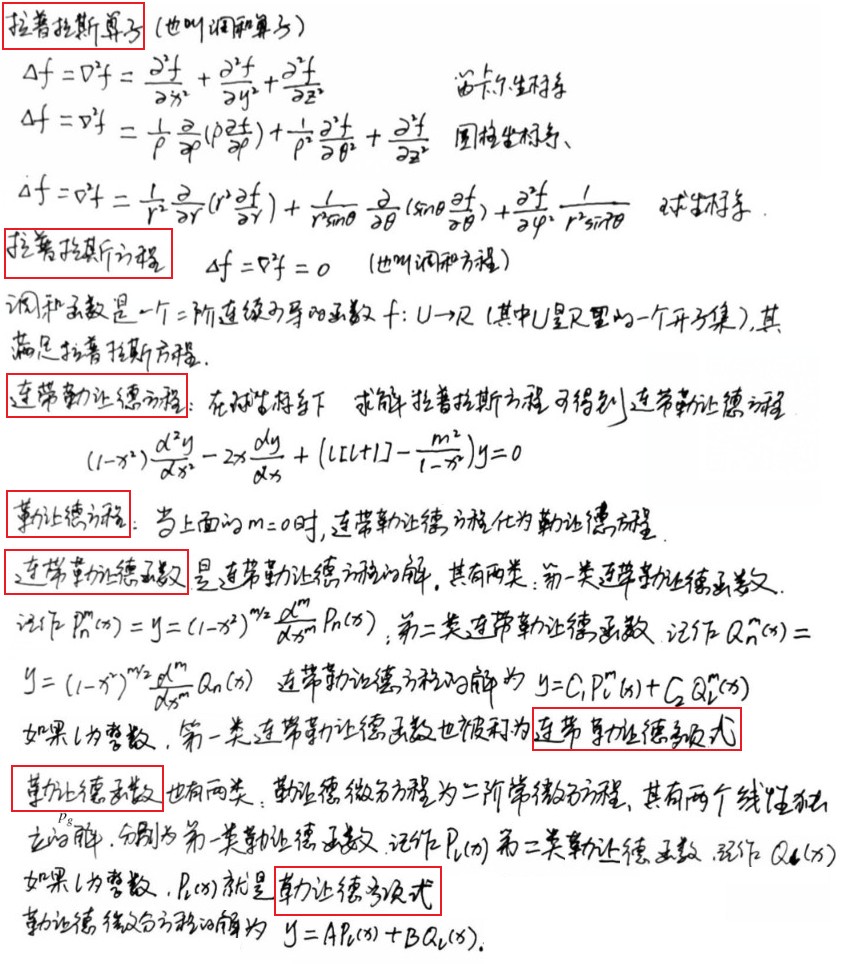 拉普拉斯算子 (也叫调和算子)
Δf = ∇²f = ∂²f/∂x² + ∂²f/∂y² + ∂²f/∂z² 笛卡尔坐标系
Δf = ∇²f = 1/ρ ∂/∂ρ(ρ ∂f/∂ρ) + 1/ρ² ∂²f/∂θ² + ∂²f/∂z² 圆柱坐标系、
Δf = ∇²f = 1/r² ∂/∂r(r² ∂f/∂r) + 1/(r²sinθ) ∂/∂θ(sinθ ∂f/∂θ) + ∂²f/∂φ² 1/(r²sin²θ) 球坐标系.
拉普拉斯方程 Δf = ∇²f = 0 (也叫调和方程)
调和函数是一个二阶连续可导的函数 f: U→R (其中U是R里的一个开子集), 其
满足拉普拉斯方程.
连带勒让德方程: 在球坐标系下 求解拉普拉斯方程可得到连带勒让德方程
(1-x²) d²y/dx² - 2x dy/dx + (l[l+1] - m²/(1-x²))y = 0
勒让德方程: 当上面的m=0时, 连带勒让德方程化为勒让德方程.
连带勒让德函数 是连带勒让德方程的解. 其有两类: 第一类连带勒让德函数.
记作 Pₙᵐ(x) = y = (1-x²)^(m/2) dᵐ/dxᵐ Pₙ(x), 第二类连带勒让德函数 记作 Qₙᵐ(x) =
y = (1-x²)^(m/2) dᵐ/dxᵐ Qₙ(x) 连带勒让德方程的解为 y = C₁Pₗᵐ(x) + C₂Qₗᵐ(x)
如果l为整数, 第一类连带勒让德函数也被称为连带勒让德多项式
勒让德函数也有两类: 勒让德微分方程为二阶常微分方程, 其有两个线性独
P₈
立的解. 分别为第一类勒让德函数 记作 Pₗ(x) 第二类勒让德函数 记作 Qₗ(x)
如果l为整数, Pₗ(x)就是勒让德多项式
勒让德微分方程的解为 y = APₗ(x) + BQₗ(x).